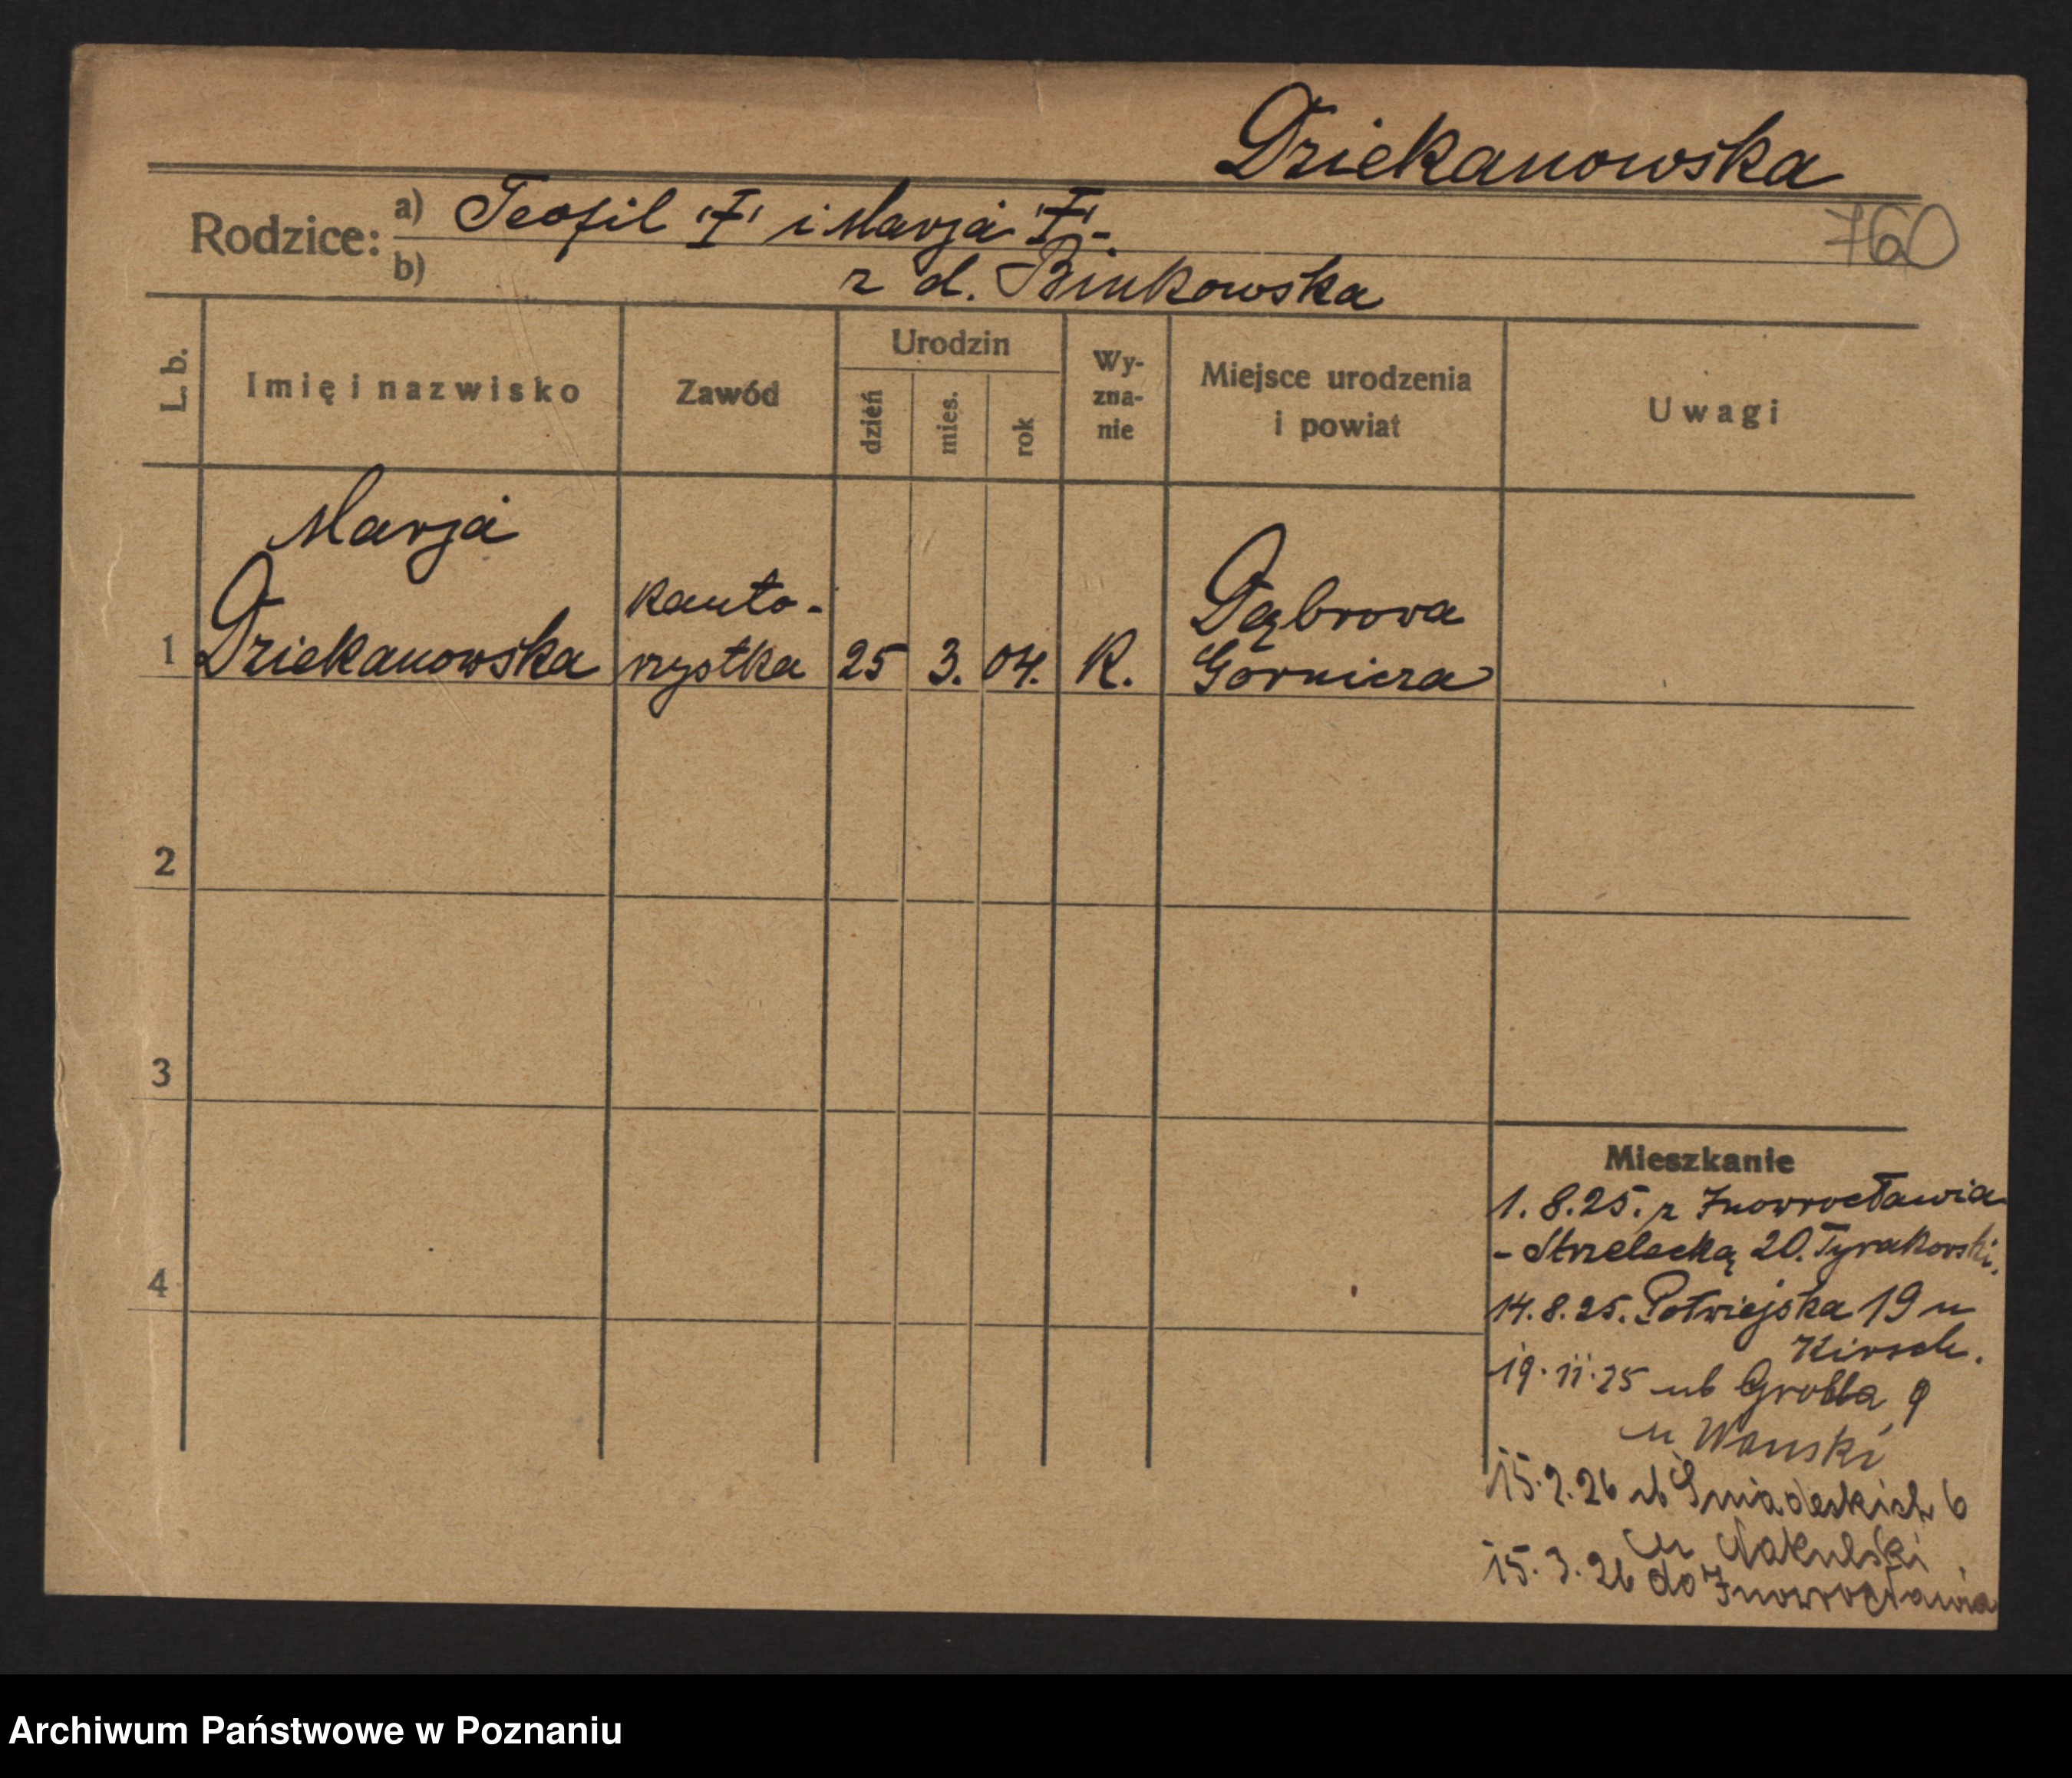 Dziekanowska
760
Rodzice:
a) Teofil "†" i Marja "†"-.
b) z d. Binkowska
L. b.
Imię i nazwisko
Zawód
Urodzin
dzień
mies.
rok
Wy-
zna-
nie
Miejsce urodzenia
i powiat
Uwagi
Marja
Dziekanowska
kanto-
rzystka
1
25
3.
04.
K.
Dąbrowa
Górnicza
2
3
4
Mieszkanie
1. 8. 25. z Inowrocławia
- Strzelecka 20. Tyrakowski.
14. 8. 25. Półwiejska 19 u
Kirsch.
19. 11. 25 ul Grobla 9
u Wanski
15. 2. 26 ul Śniadeckich 6
u Nakulski
15. 3. 26 do Inowrocławia
Archiwum Państwowe w Poznaniu